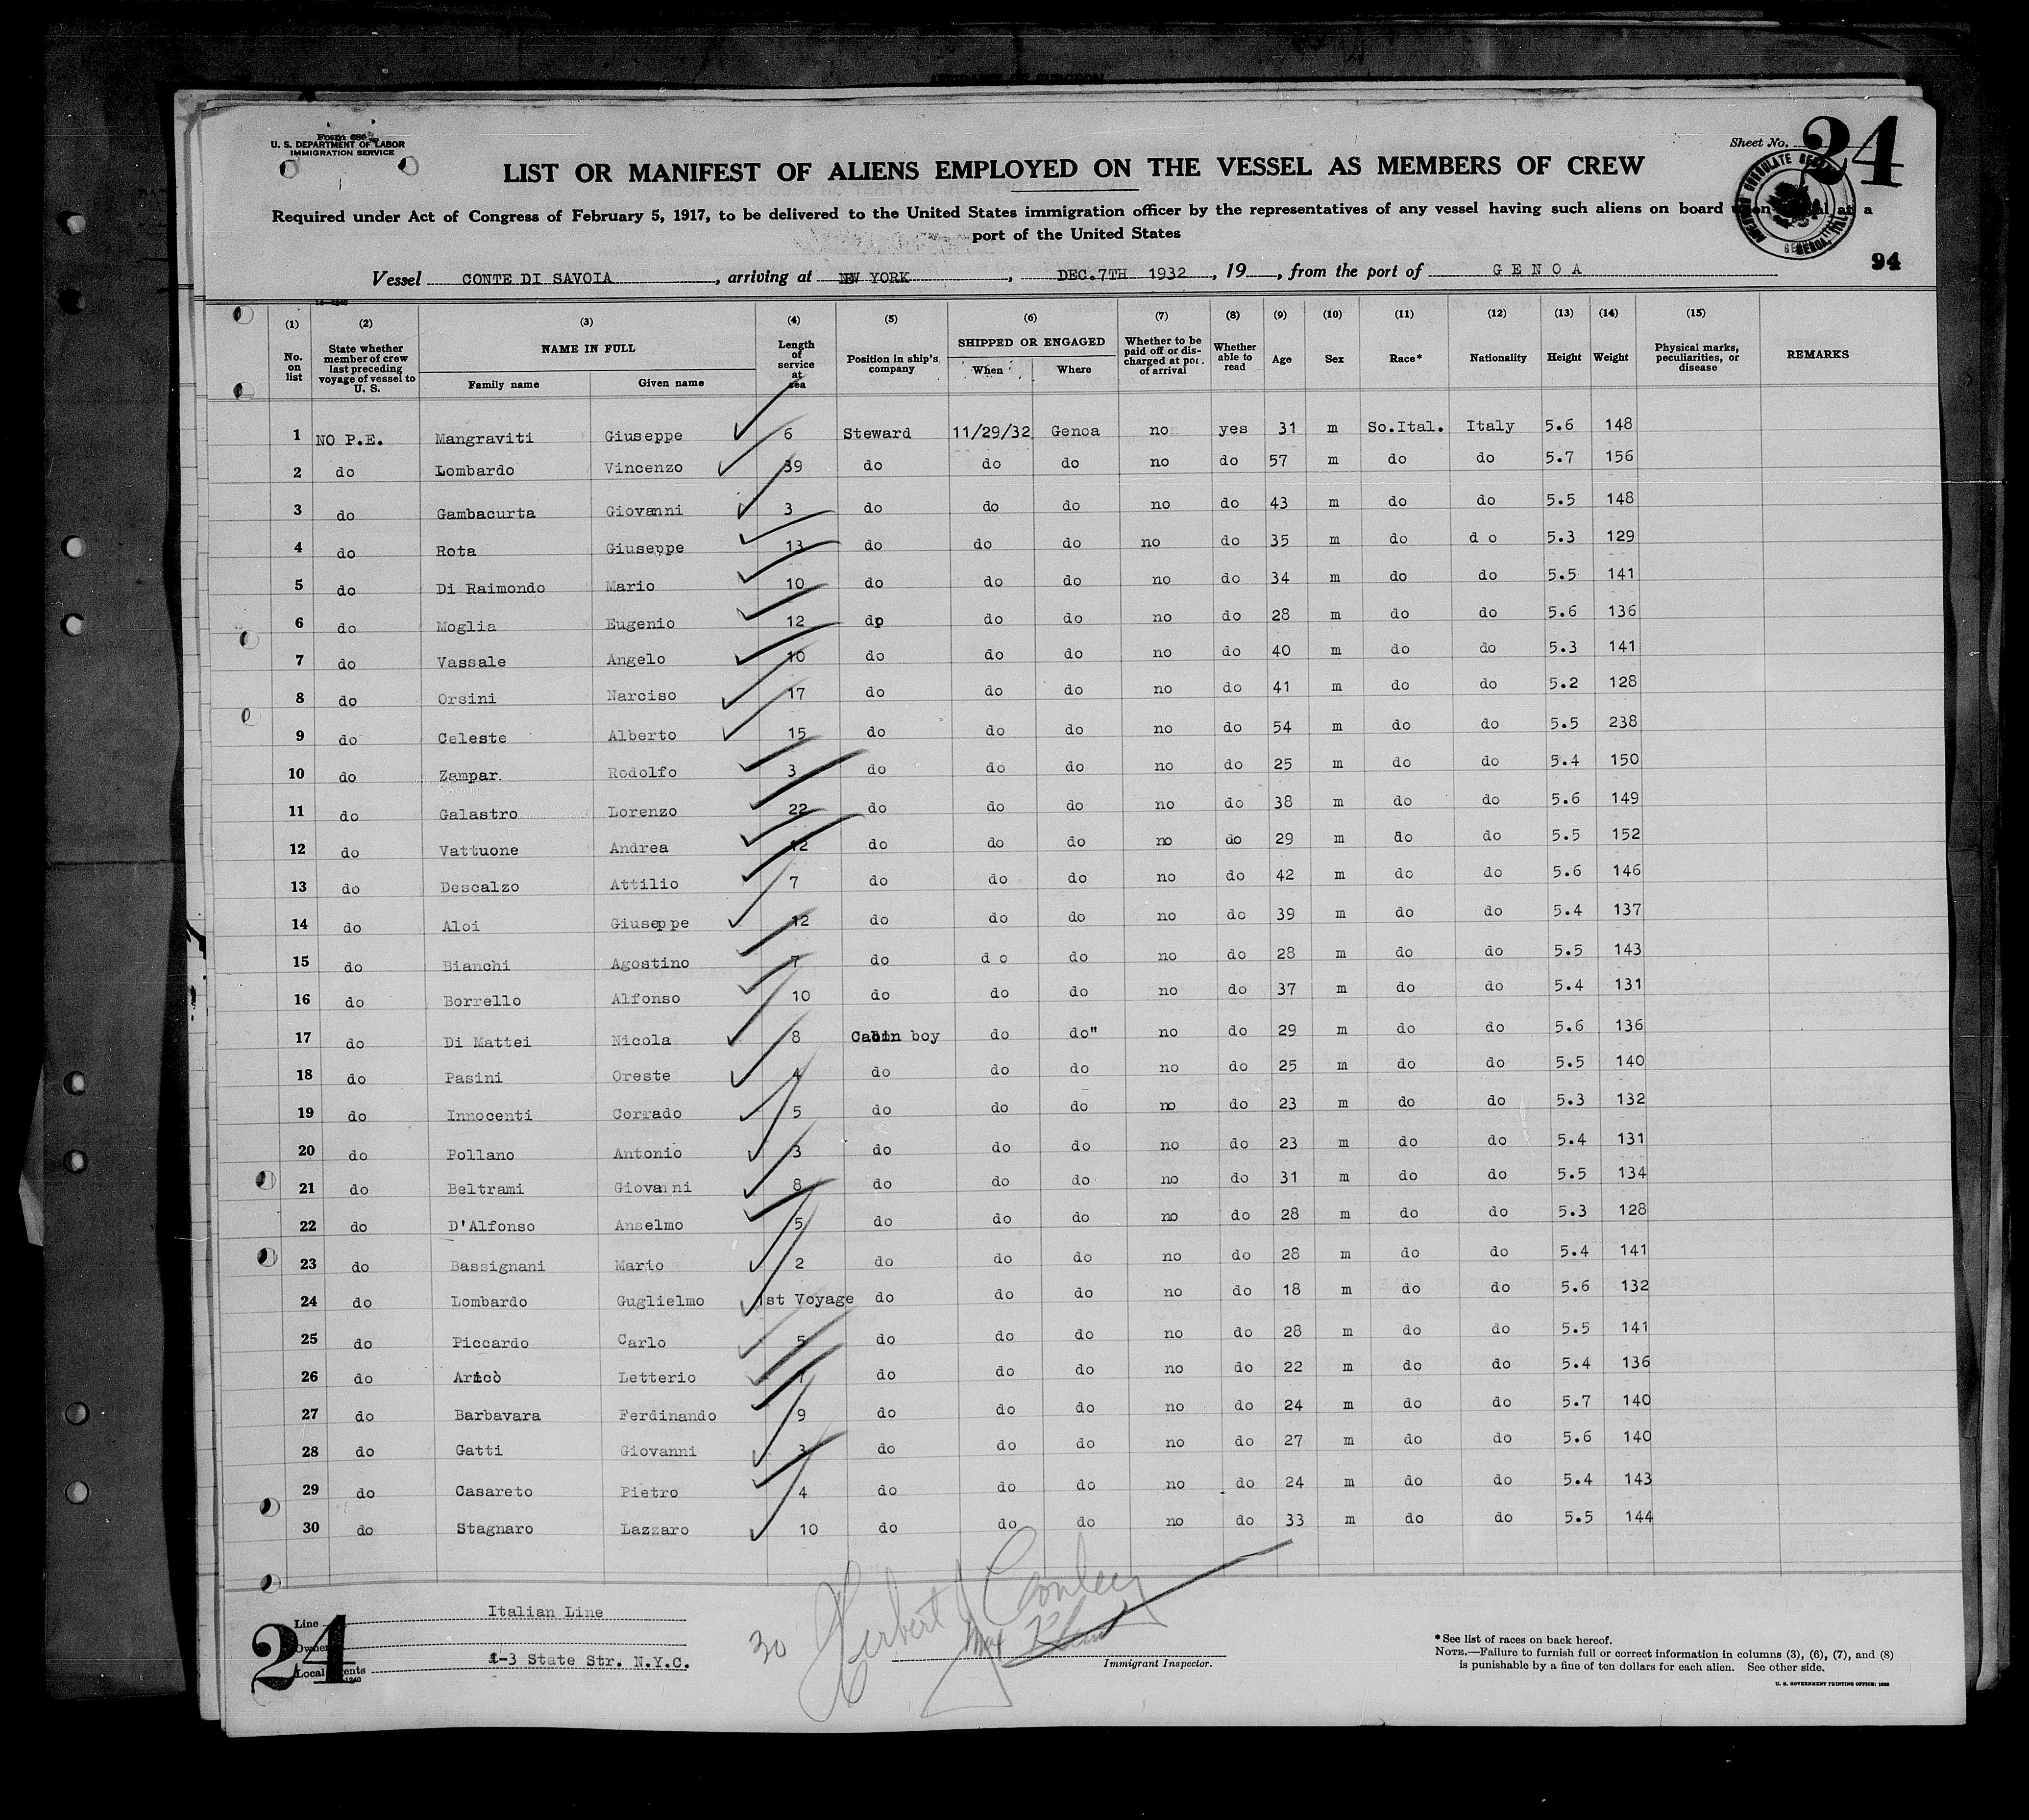 Form 680
U. S. DEPARTMENT OF LABOR
IMMIGRATION SERVICE
Sheet No. 24
LIST OR MANIFEST OF ALIENS EMPLOYED ON THE VESSEL AS MEMBERS OF CREW
Required under Act of Congress of February 5, 1917, to be delivered to the United States immigration officer by the representatives of any vessel having such aliens on board upon arrival at a
port of the United States
94
Vessel CONTE DI SAVOIA, arriving at NEW YORK, DEC.7TH 1932, 19, from the port of GENOA
(1) (2) (3) (4) (5) (6) (7) (8) (9) (10) (11) (12) (13) (14) (15)
No. on list State whether member of crew last preceding voyage of vessel to U. S. NAME IN FULL Family name Given name Length of service at sea Position in ship's company SHIPPED OR ENGAGED When Where Whether to be paid off or discharged at port of arrival Whether able to read Age Sex Race* Nationality Height Weight Physical marks, peculiarities, or disease REMARKS
1 NO P.E. Mangraviti Giuseppe 6 Steward 11/29/32 Genoa no yes 31 m So.Ital. Italy 5.6 148
2 do Lombardo Vincenzo 39 do do do no do 57 m do do 5.7 156
3 do Gambacurta Giovanni 3 do do do no do 43 m do do 5.5 148
4 do Rota Giuseppe 13 do do do no do 35 m do d o 5.3 129
5 do Di Raimondo Mario 10 do do do no do 34 m do do 5.5 141
6 do Moglia Eugenio 12 do do do no do 28 m do do 5.6 136
7 do Vassale Angelo 10 do do do no do 40 m do do 5.3 141
8 do Orsini Narciso 17 do do do no do 41 m do do 5.2 128
9 do Celeste Alberto 15 do do do no do 54 m do do 5.5 238
10 do Zampar Rodolfo 3 do do do no do 25 m do do 5.4 150
11 do Galastro Lorenzo 22 do do do no do 38 m do do 5.6 149
12 do Vattuone Andrea 12 do do do no do 29 m do do 5.5 152
13 do Descalzo Attilio 7 do do do no do 42 m do do 5.6 146
14 do Aloi Giuseppe 12 do do do no do 39 m do do 5.4 137
15 do Bianchi Agostino 7 do d o do no do 28 m do do 5.5 143
16 do Borrello Alfonso 10 do do do no do 37 m do do 5.4 131
17 do Di Mattei Nicola 8 Cabin boy do do" no do 29 m do do 5.6 136
18 do Pasini Oreste 4 do do do no do 25 m do do 5.5 140
19 do Innocenti Corrado 5 do do do no do 23 m do do 5.3 132
20 do Pollano Antonio 3 do do do no do 23 m do do 5.4 131
21 do Beltrami Giovanni 8 do do do no do 31 m do do 5.5 134
22 do D'Alfonso Anselmo 5 do do do no do 28 m do do 5.3 128
23 do Bassignani Mario 2 do do do no do 28 m do do 5.4 141
24 do Lombardo Guglielmo 1st Voyage do do do no do 18 m do do 5.6 132
25 do Piccardo Carlo 5 do do do no do 28 m do do 5.5 141
26 do Aricò Letterio do do do no do 22 m do do 5.4 136
27 do Barbavara Ferdinando 9 do do do no do 24 m do do 5.7 140
28 do Gatti Giovanni 3 do do do no do 27 m do do 5.6 140
29 do Casareto Pietro 4 do do do no do 24 m do do 5.4 143
30 do Stagnaro Lazzaro 10 do do do no do 33 m do do 5.5 144
24
Line Italian Line
Owner
Local Agents 1-3 State Str. N.Y.C.
30 Herbert J Conley
Immigrant Inspector.
*See list of races on back hereof.
NOTE.—Failure to furnish full or correct information in columns (3), (6), (7), and (8)
is punishable by a fine of ten dollars for each alien. See other side.